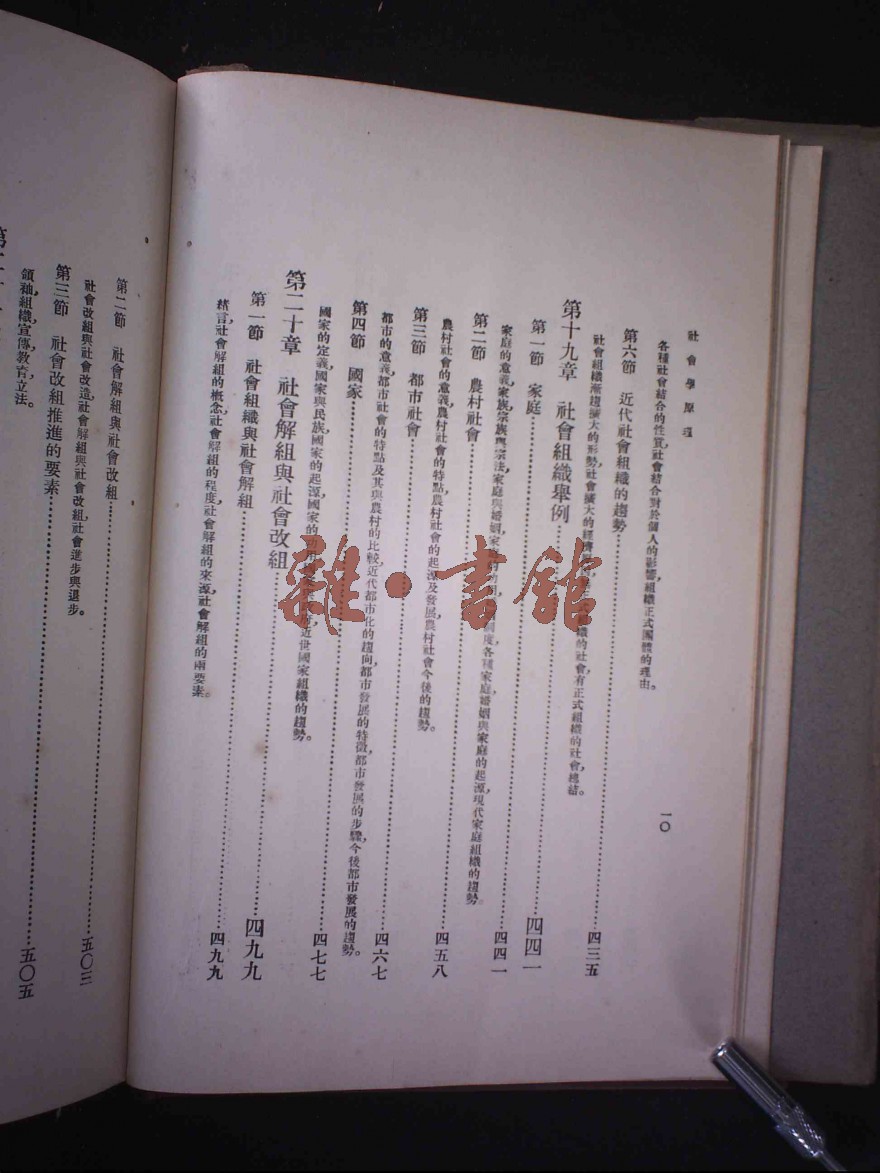 社會學原理
一〇
各種社會結合的性質，社會結合對於個人的影響，組織正式團體的理由。
第六節　近代社會組織的趨勢……四三五
社會組織漸趨擴大的形勢，社會擴大的經濟 的社會，有正式組織的社會，總結。
第十九章　社會組織舉例……四四一
第一節　家庭……四四一
家庭的意義，家族，宗族與宗法，家庭與婚姻，家庭的功用， 制度，各種家庭，婚姻與家庭的起源，現代家庭組織的趨勢。
第二節　農村社會……四五八
農村社會的意義，農村社會的特點，農村社會的起源及發展，農村社會今後的趨勢。
第三節　都市社會……四六七
都市的意義，都市社會的特點及其與農村的比較，近代都市化的趨向，都市發展的特徵，都市發展的步驟，今後都市發展的趨勢。
第四節　國家……四七七
國家的定義，國家與民族，國家的起源，國家的功用， 近世國家組織的趨勢。
第二十章　社會解組與社會改組……四九九
第一節　社會組織與社會解組……四九九
緒言，社會解組的概念，社會解組的程度，社會解組的來源，社會解組的兩要素。
第二節　社會解組與社會改組……五〇三
社會改組與社會改造，社會解組與社會改組，社會進步與退步。
第三節　社會改組推進的要素……五〇五
領袖，組織，宣傳，教育，立法。
雜·書館